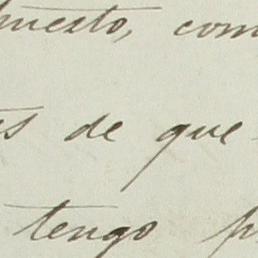 puesto, com
as de que
tengo p